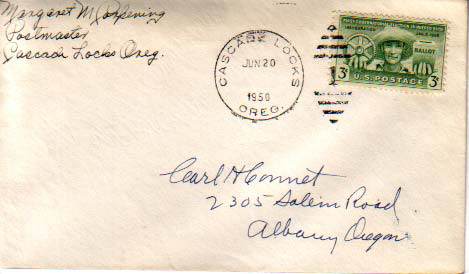 Margaret M
Postmaster
Cascade Locks Oreg.
CASCADE LOCKS
JUN 20
1950
OREG.
FIRST GUBERNATORIAL ELECTION IN PUERTO RICO
INAUGURATION
BALLOT
3¢ U.S. POSTAGE 3¢
Carl H Connet
2305 Salem Road
Albany Oregon